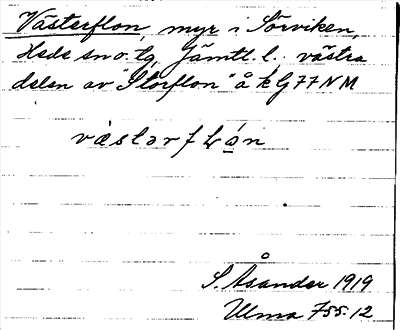 Västerflon, myr i Sörviken,
Hede sn o. tg, Jämtl. l. västra
delen av "Storflon" å k G 77 N M
västərfɫon
S. Åsander 1919
Ulma 755:12